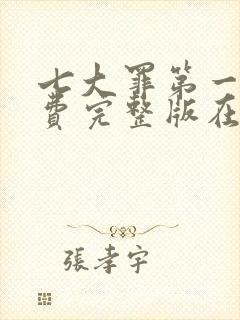 七大罪第一
费完整版在
張孝宇